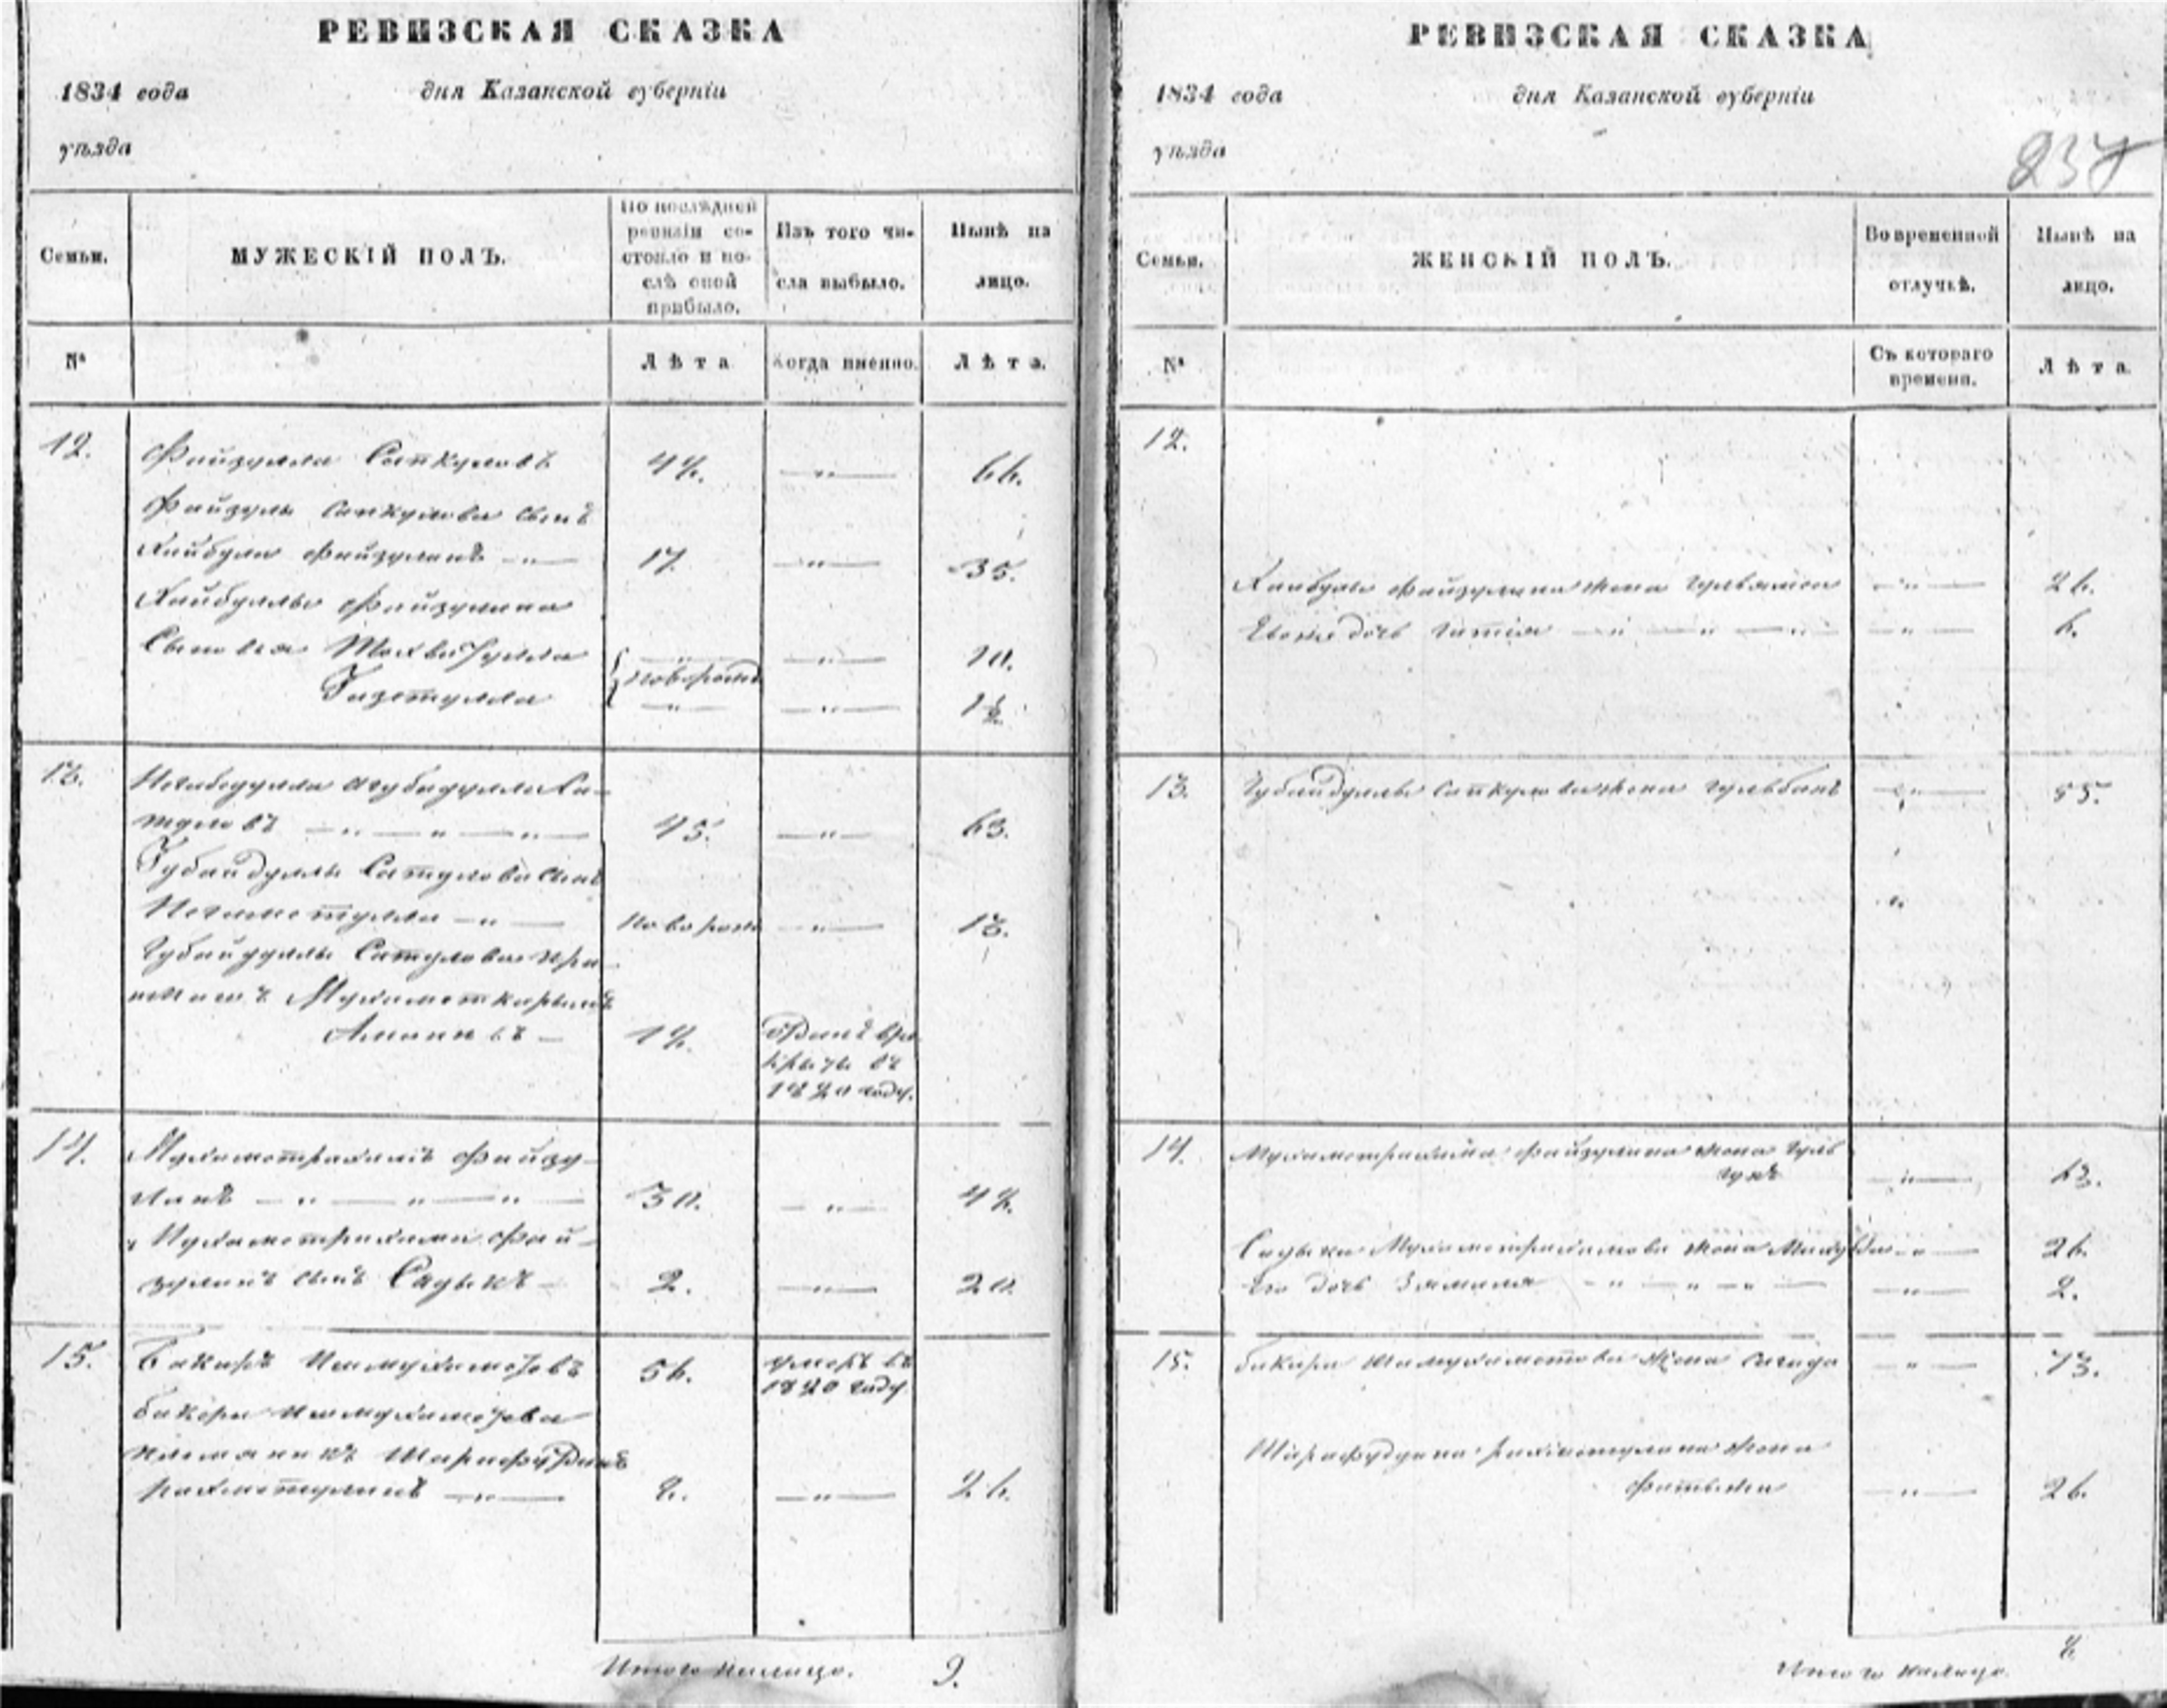 РЕВИЗСКАЯ СКАЗКА
1834 года дня Казанской губерніи
уѣзда
Семьи. МУЖЕСКІЙ ПОЛЪ. По послѣдней ревизіи состояло и послѣ оной прибыло. Изъ того числа выбыло. Нынѣ на лицо.
№ Лѣта Когда именно. Лѣта.
12. Файзулла Сапкуловъ 48. —"— 66.
Файзулы Сапкулова сынъ
Хайбула Файзулинъ —"— 17. —"— 35.
Хайбуллы Файзулина
Сыновья —"— —"— 10.
новорожд
Гизетулла —"— —"— 1½.
13.
—"—"—"— 45. —"— 63.
Губайдуллы Сатулова сынъ
Негаметулла —"— новорож —"— 18.
Губайдуллы Сатулова при-
Мухаметкаримъ
18. въ
году.
14. Мухаметрахимъ Файзу-
линъ —"—"—"— 30. —"— 48.
Мухаметрахима Фай-
зулинъ сынъ Садыкъ — 2. —"— 20.
15. Бакиръ Ишмухаметовъ 56. умеръ въ
году
Бакира Ишмухаметова
племянникъ Шарафудинъ
Рахметулинъ —"— 8. —"— 26.
Итого налицо. 9.
РЕВИЗСКАЯ СКАЗКА
1834 года дня Казанской губерніи
уѣзда
237
Семьи. ЖЕНСКІЙ ПОЛЪ. Во временной отлучкѣ. Нынѣ на лицо.
№ Съ котораго времени. Лѣта.
12.
Хайбулы Файзулина жена —"— 26.
дочь —"—"—"— —"— 6.
13. Губайдуллы Сапкулова жена Гульбану —"— 55.
14. Мухаметрахима Файзулина жена Гуль
—"— 63.
Садыка Мухаметрахимова жена —"— 26.
Его дочь Зямиля —"—"—"— —"— 2.
15. Бакира Ишмухаметова жена Сагида —"— 73.
Шарафудина Рахметулина жена
Фатыма —"— 26.
8.
Итого налицо.